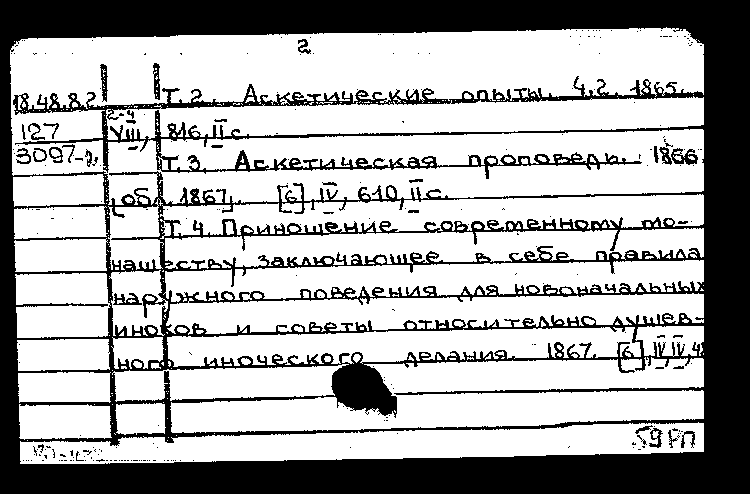 2
18.48.8.2 Т.2. Аскетические опыты. Ч.2. 1865.
127 VIII, 816, II с.
3097-д. Т.3. Аскетическая проповедь. 1866
[обл. 1867]. [6], IV, 610, II с.
Т.4. Приношение современному мо-
нашеству, заключающее в себе правила
наружного поведения для новоначальных
иноков и советы относительно душев-
ного иноческого делания. 1867. [6], IV, IV, 48
59РП